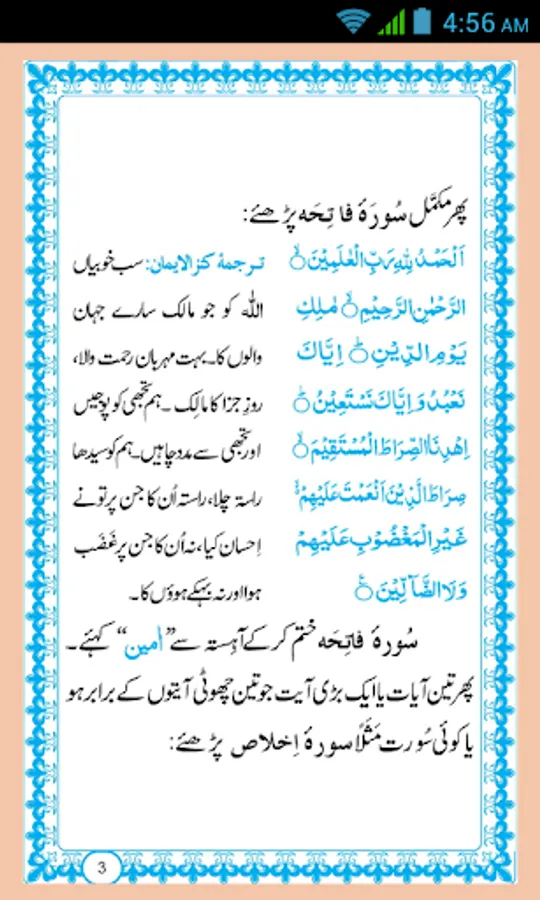 4:56 AM
پھر مکمَّل سُورَۂ فَاتِحَہ پڑھئے:
اَلْحَمْدُ لِلّٰهِ رَبِّ الْعٰلَمِیْنَۙ
الرَّحْمٰنِ الرَّحِیْمِۙ مٰلِكِ
یَوْمِ الدِّیْنِؕ اِیَّاكَ
نَعْبُدُ وَ اِیَّاكَ نَسْتَعِیْنُؕ
اِهْدِنَا الصِّرَاطَ الْمُسْتَقِیْمَۙ
صِرَاطَ الَّذِیْنَ اَنْعَمْتَ عَلَیْهِمْ۬ۙ
غَیْرِ الْمَغْضُوْبِ عَلَیْهِمْ
وَ لَا الضَّآلِّیْنَ۠
ترجمۂ کنزالایمان: سب خوبیاں
اللہ کو جو مالک سارے جہان
والوں کا۔ بہت مہربان رحمت والا،
روزِ جزا کا مالِک۔ ہم تجھی کو پوجیں
اور تجھی سے مدد چاہیں۔ ہم کو سیدھا
راستہ چلا، راستہ اُن کا جن پر تو نے
اِحسان کیا، نہ اُن کا جن پر غَضَب
ہوا اور نہ بہکے ہوؤں کا۔
سُورۂ فاتِحَہ ختم کر کے آہِستہ سے ”اٰمین“ کہئے۔
پھر تین آیات یا ایک بڑی آیت جو تین چھوٹی آیتوں کے برابر ہو
یا کوئی سُورت مَثَلًا سورۂ اِخلاص پڑھئے:
3